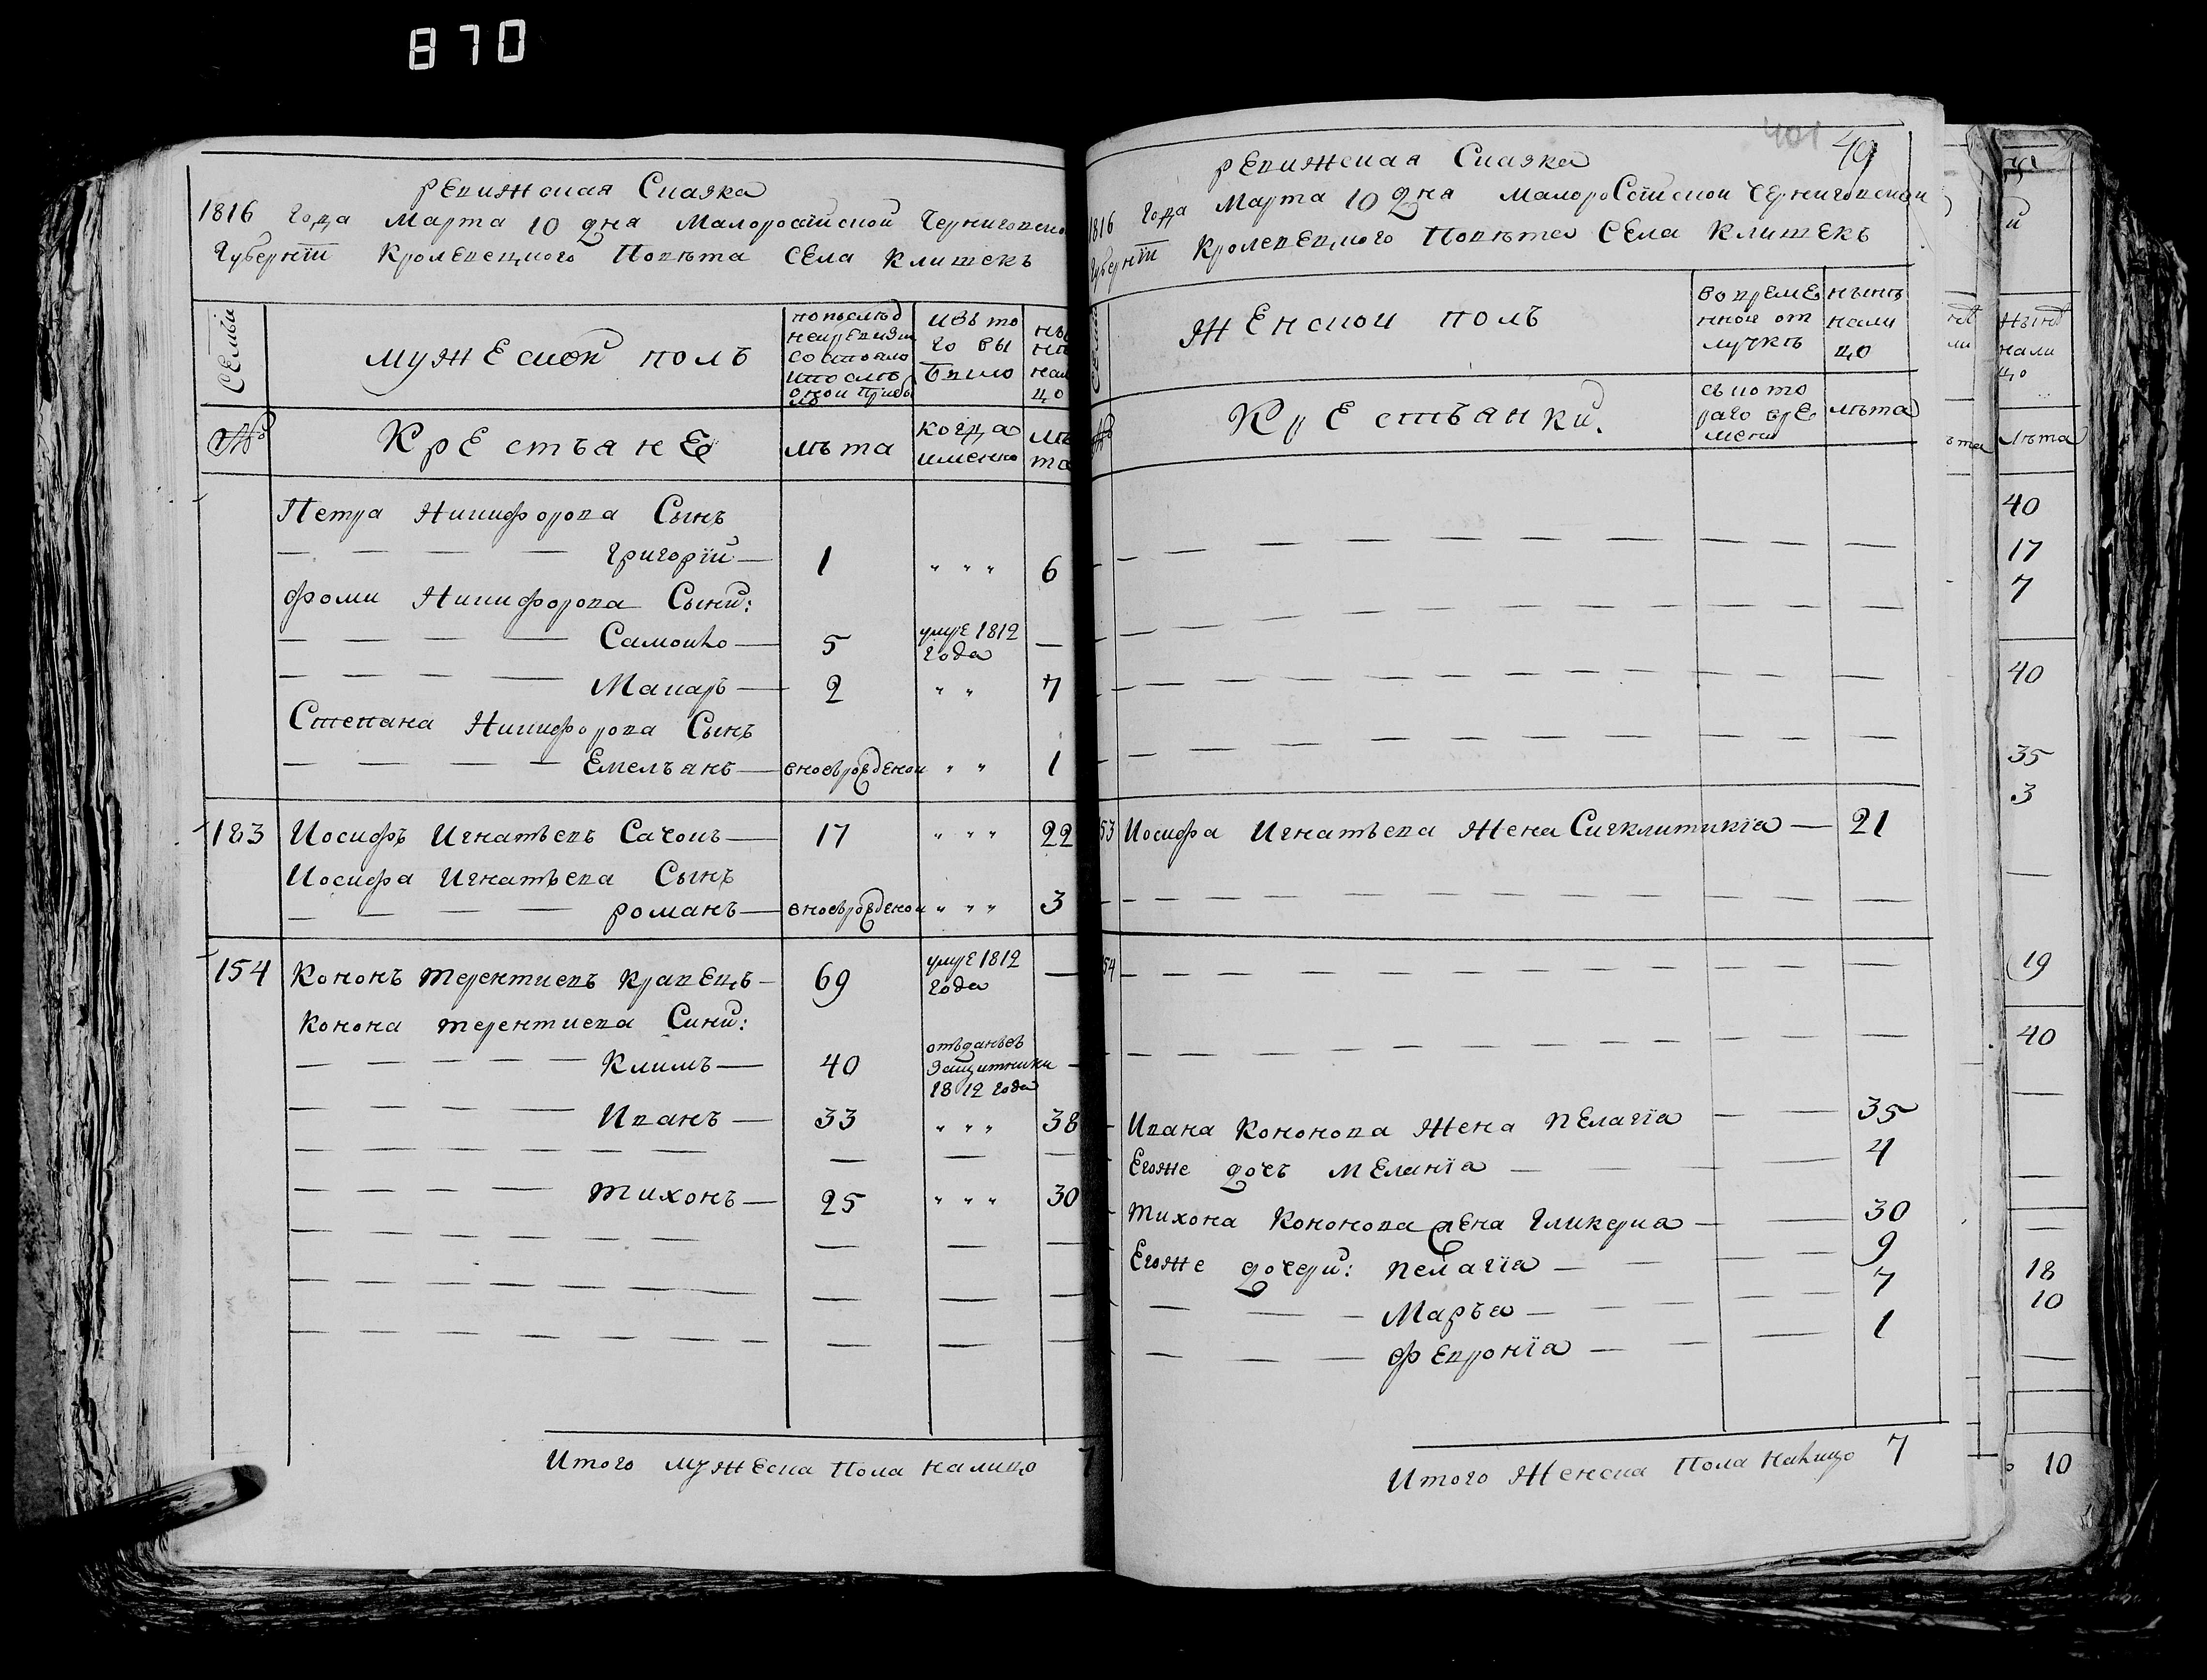 870
Ревижская Сказка
1816 Года Марта 10 дня Малоросїйской Чернигопско
Губернїи Кролевецкого Повѣта Села Клишекъ
Семьи
мужеской полъ
по послѣд
ней ревизи
состояло
и послѣ
оной прибы
ло
изъ то
го вы
было
ны
нѣ
нали
цо
№
Крестьяне
лѣта
когда
именно
лѣ
та
Петра Никифорова Сынъ
Григорїй 1 " " " 6
Фоми Никифорова Сыни:
Самойло 5 умре 1812 года —
Макаръ 2 " " 7
Степана Никифорова Сынъ
Емельянъ вновьрожденои " " 1
183 Иосифъ Игнатьевъ Сачокъ 17 " " " 22
Иосифа Игнатьева Сынъ
Романъ вновьрожденои " " " 3
154 Кононъ Терентиевъ Кравецъ 69 умре 1812 года —
Конона Терентиева Сини:
Климъ 40 отъданъ въ Защитники 1812 года —
Иванъ 33 " " " 38
Тихонъ 25 " " " 30
Итого мужеска Пола налицо 7
401 49
Ревижская Сказка
1816 Года Марта 10 дня Малоросїйской Черниговской
Губернїи Кролевецкого Повѣта Села Клишекъ
Семьи
Женской полъ
во време
нной от
лучкѣ
нынѣ
нали
цо
№
Крестьянки.
съ кото
раго вре
мени
лѣта
53 Иосифа Игнатьева Жена Сигклитикїа — 21
54
Ивана Кононова Жена Пелагїа 35
Егоже дочь Меланїа 4
Тихона Кононова жена Гликериа 30
Егоже дочери: Пелагїа 9
Марья 7
Февронїа 1
Итого Женска Пола Налицо 7
ны
нали
цо
Лѣта
40
17
7
40
35
3
19
40
18
10
10